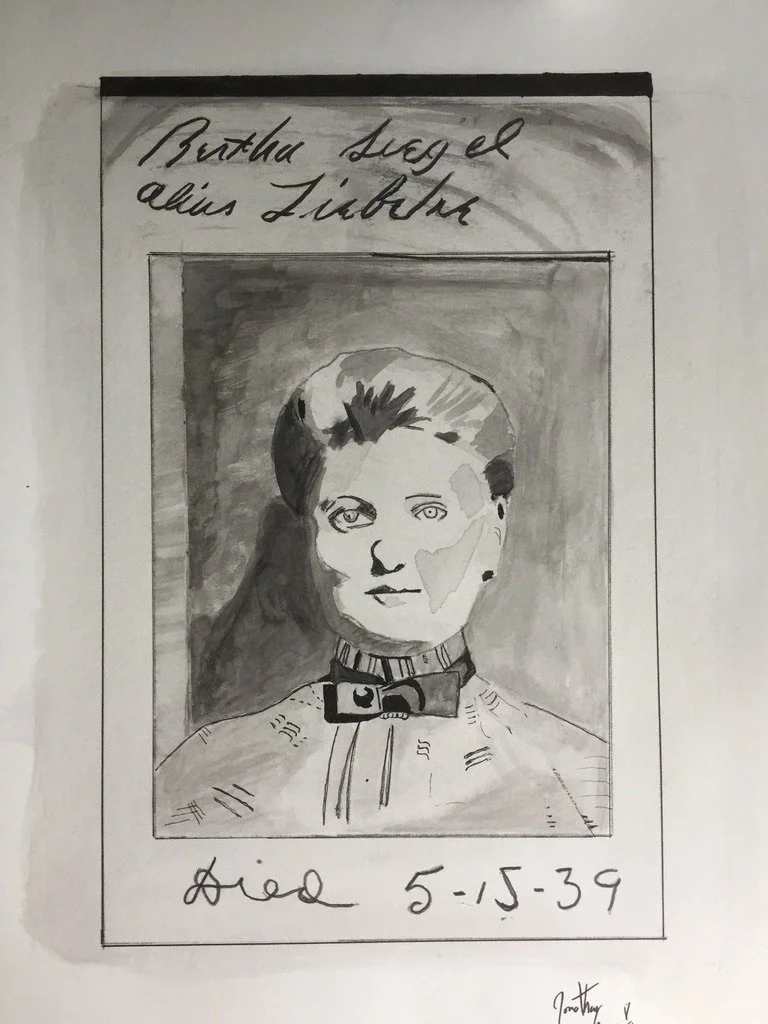 Bertha Siegel
alias Liebeke
Died 5-15-39
Jonathan